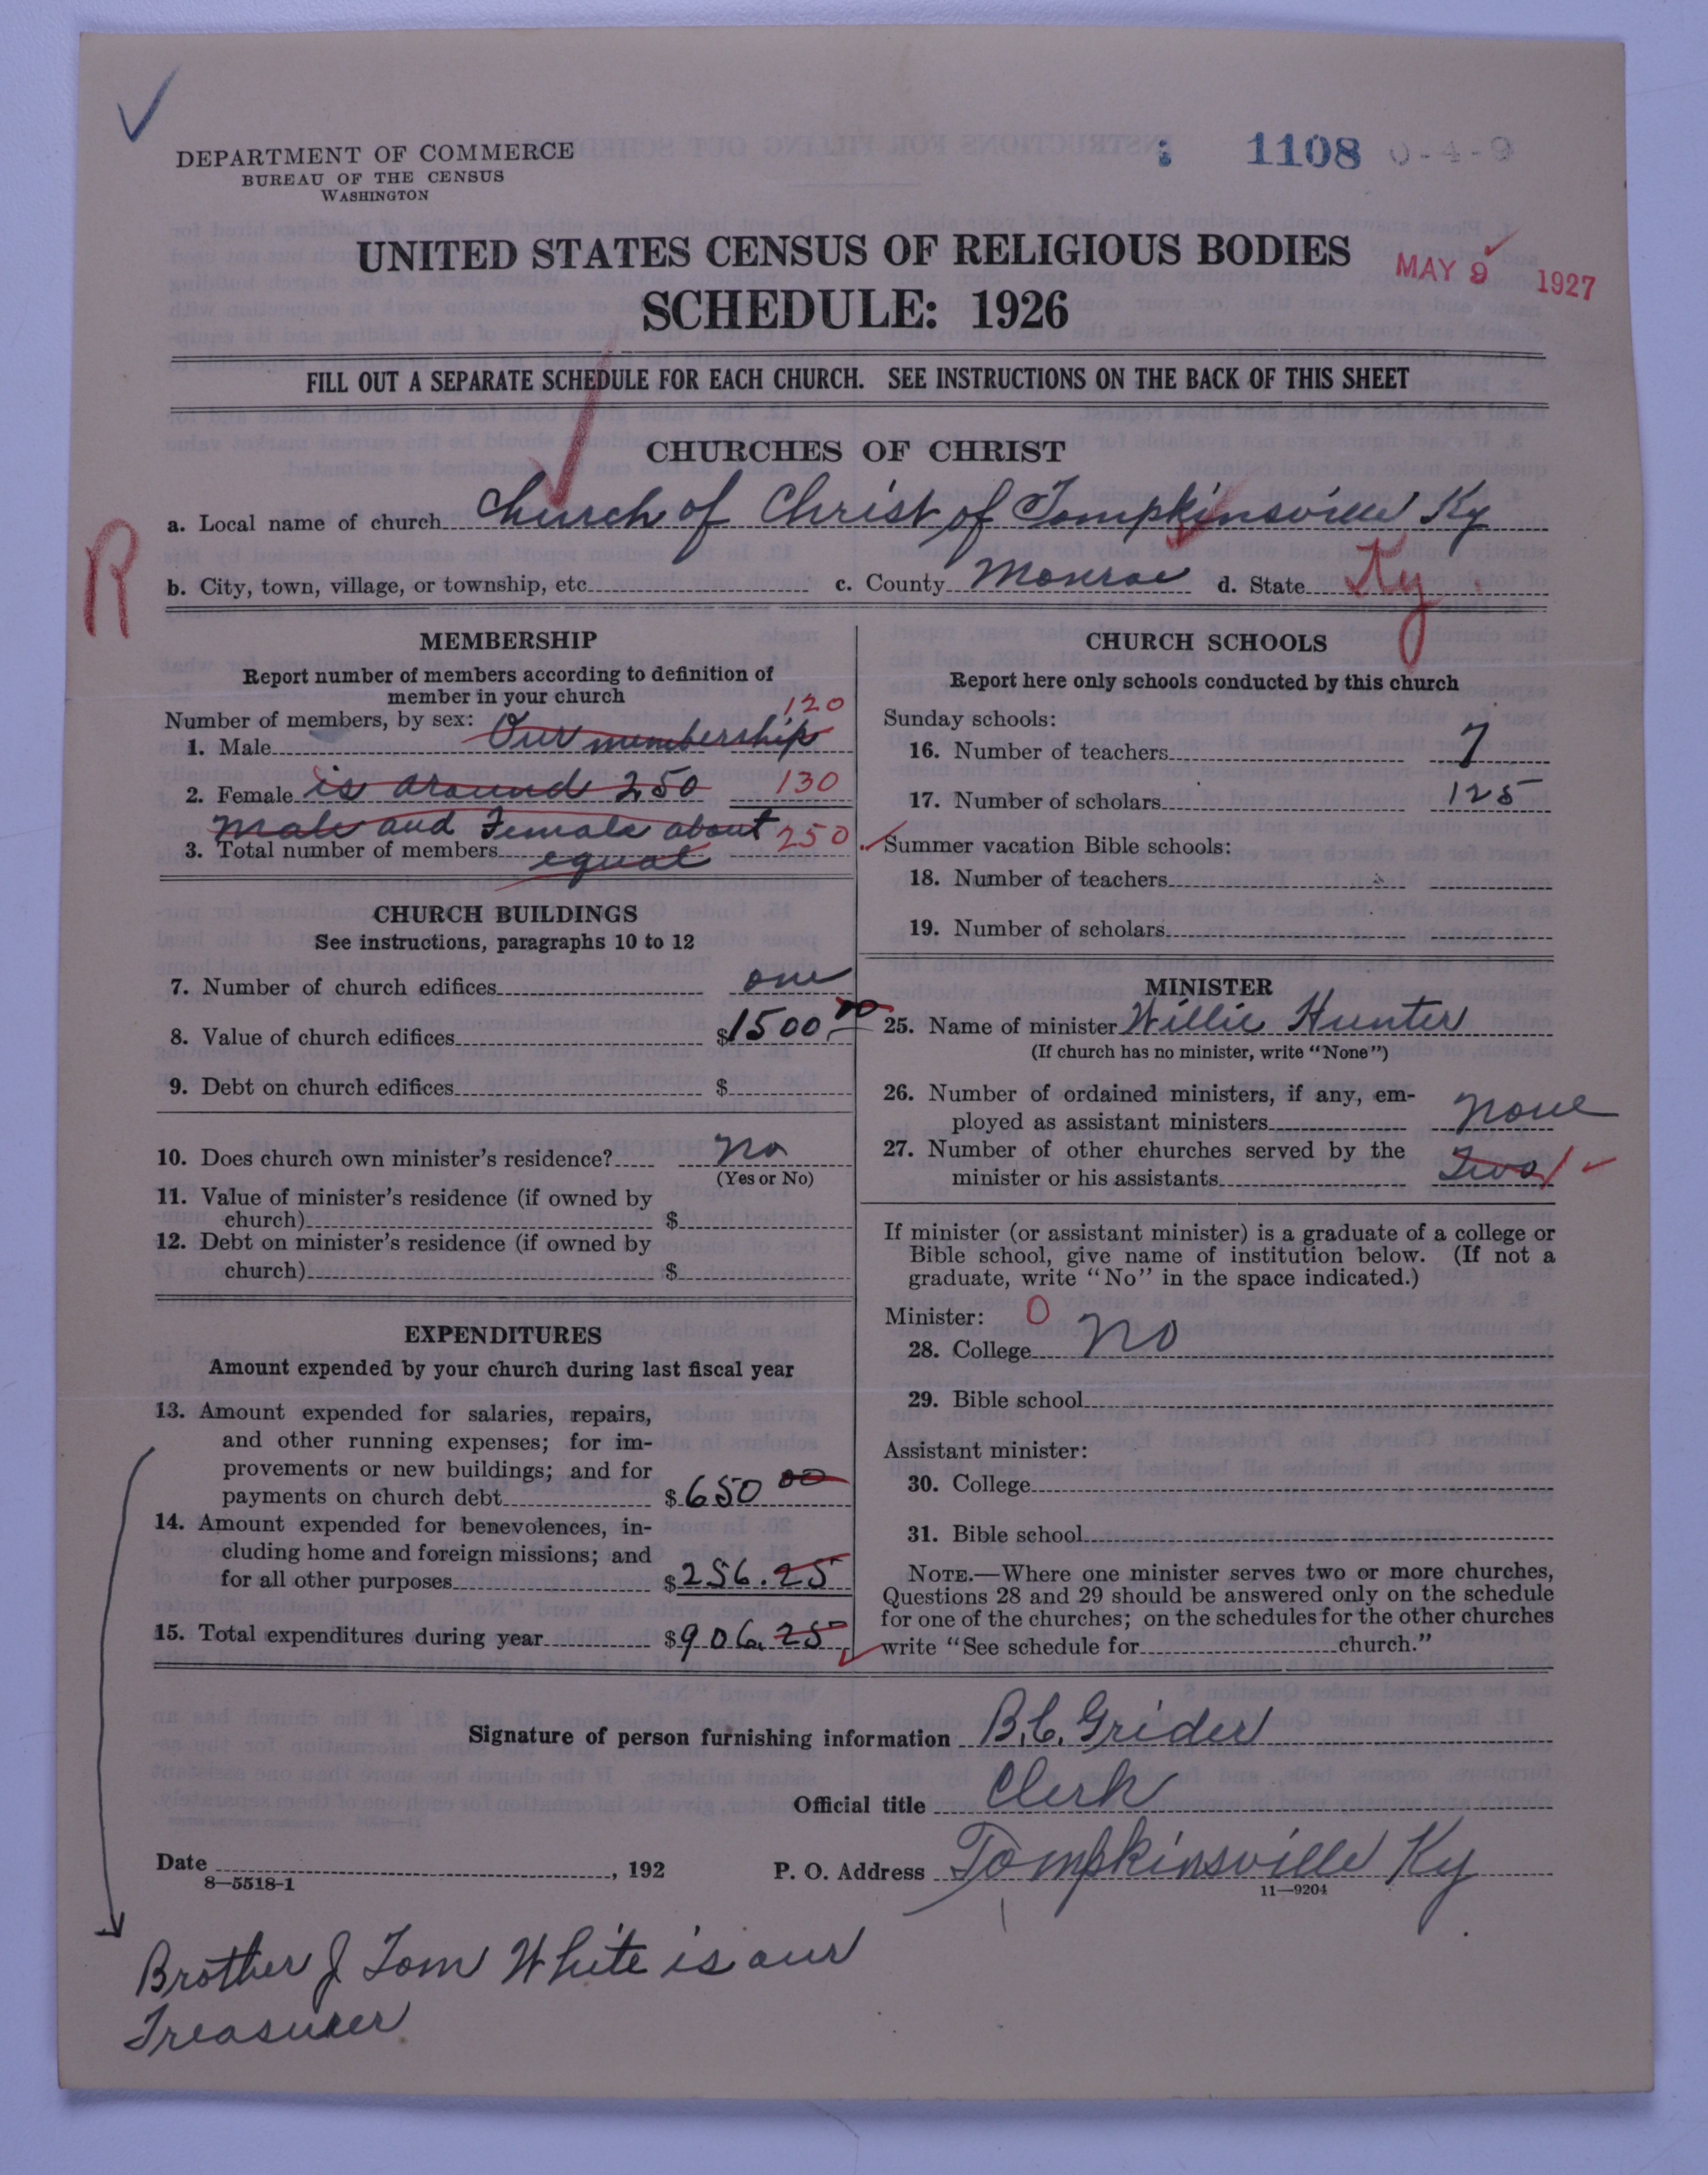 DEPARTMENT OF COMMERCE
BUREAU OF THE CENSUS
WASHINGTON
1108 0-4-9
UNITED STATES CENSUS OF RELIGIOUS BODIES
SCHEDULE: 1926
MAY 9 1927
FILL OUT A SEPARATE SCHEDULE FOR EACH CHURCH. SEE INSTRUCTIONS ON THE BACK OF THIS SHEET
CHURCHES OF CHRIST
a. Local name of church Church of Christ of Tompkinsville Ky
R
b. City, town, village, or township, etc. c. County Monroe d. State Ky
MEMBERSHIP
Report number of members according to definition of
member in your church
Number of members, by sex: 120
1. Male Our membership
2. Female is around 250 130
Male and Female about
3. Total number of members equal 250
CHURCH BUILDINGS
See instructions, paragraphs 10 to 12
7. Number of church edifices one
8. Value of church edifices $1500.00
9. Debt on church edifices $
10. Does church own minister's residence? no
(Yes or No)
11. Value of minister's residence (if owned by
church) $
12. Debt on minister's residence (if owned by
church) $
EXPENDITURES
Amount expended by your church during last fiscal year
13. Amount expended for salaries, repairs,
and other running expenses; for im-
provements or new buildings; and for
payments on church debt $650 00
14. Amount expended for benevolences, in-
cluding home and foreign missions; and
for all other purposes $256.25
15. Total expenditures during year $906.25
CHURCH SCHOOLS
Report here only schools conducted by this church
Sunday schools:
16. Number of teachers 7
17. Number of scholars 125
Summer vacation Bible schools:
18. Number of teachers
19. Number of scholars
MINISTER
25. Name of minister Willie Hunter
(If church has no minister, write "None")
26. Number of ordained ministers, if any, em-
ployed as assistant ministers none
27. Number of other churches served by the
minister or his assistants Two 1
If minister (or assistant minister) is a graduate of a college or
Bible school, give name of institution below. (If not a
graduate, write "No" in the space indicated.)
Minister: 0
28. College no
29. Bible school
Assistant minister:
30. College
31. Bible school
NOTE.—Where one minister serves two or more churches,
Questions 28 and 29 should be answered only on the schedule
for one of the churches; on the schedules for the other churches
write "See schedule for church."
Signature of person furnishing information B.C. Grider
Official title Clerk
Date , 192 P. O. Address Tompkinsville Ky
8—5518-1 11—9204
Brother J Tom White is our
Treasurer